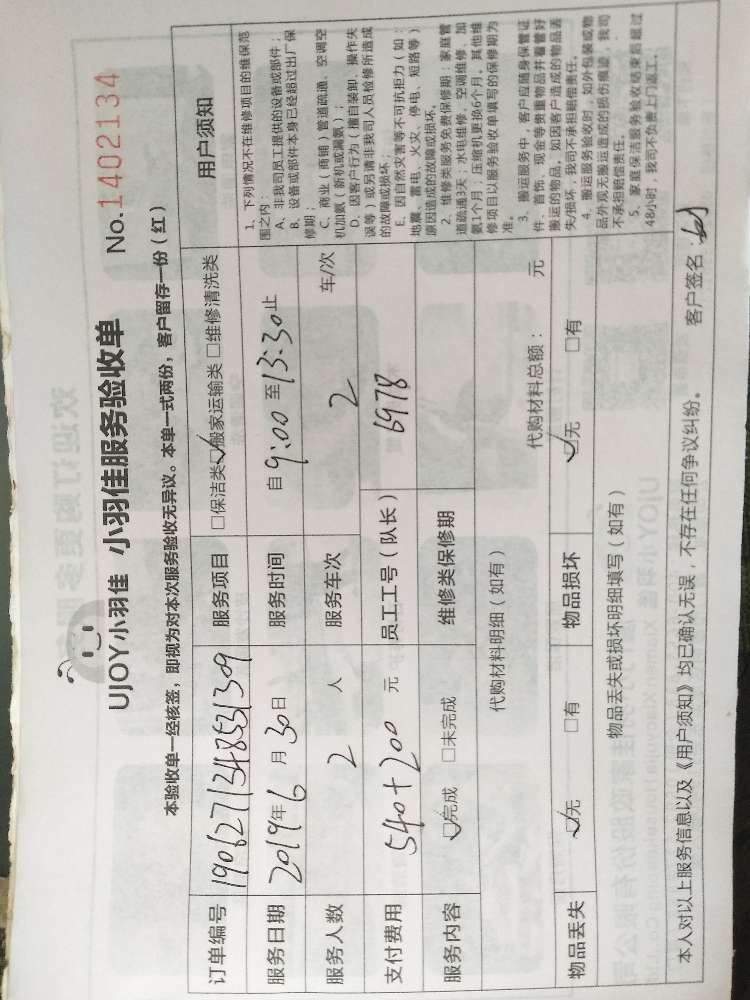 UJOY小羽佳 小羽佳服务验收单 No.1402134
本验收单一经核签，即视为对本次服务验收无异议。本单一式两份，客户留存一份（红）
订单编号 1906271348531309 服务项目 □保洁类 ☑搬家运输类 □维修清洗类
服务日期 2019年6月30日 服务时间 自9:00至13:30止
服务人数 2 人 服务车次 2 车/次
支付费用 540+200 元 员工工号（队长） 6978
服务内容 ☑完成 □未完成 维修类保修期
代购材料明细（如有） 代购材料总额： 元
物品丢失 ☑无 □有 物品损坏 ☑无 □有
物品丢失或损坏明细填写（如有）
用户须知
1、下列情况不在维修项目的维保范
围之内：
A、非我司员工提供的设备或部件；
B、设备或部件本身已经超过出厂保
修期；
C、商业（商铺）管道疏通、空调空
机加氨（新机或漏氨）；
D、因客户行为（擅自装卸、操作失
误等）或另请非我司人员检修所造成
的故障或损坏；
E、因自然灾害等不可抗拒力（如：
地震、雷电、火灾、停电、短路等）
原因造成的故障或损坏。
2、维修类服务免费保修期：家庭管
道疏通3天；水电维修、空调维修、加
氨1个月；压缩机更换6个月。其他维
修项目以服务验收单填写的保修期为
准。
3、搬运服务中，客户应随身保管证
件、首饰、现金等贵重物品并看管好
搬运的物品。如因客户造成的物品丢
失/损坏，我司不承担赔偿责任。
4、搬运服务验收时，如外包装或物
品外观无搬运造成的损伤痕迹，我司
不承担赔偿责任。
5、家庭保洁服务验收结束后超过
48小时，我司不负责上门返工。
本人对以上服务信息以及《用户须知》均已确认无误，不存在任何争议纠纷。 客户签名：